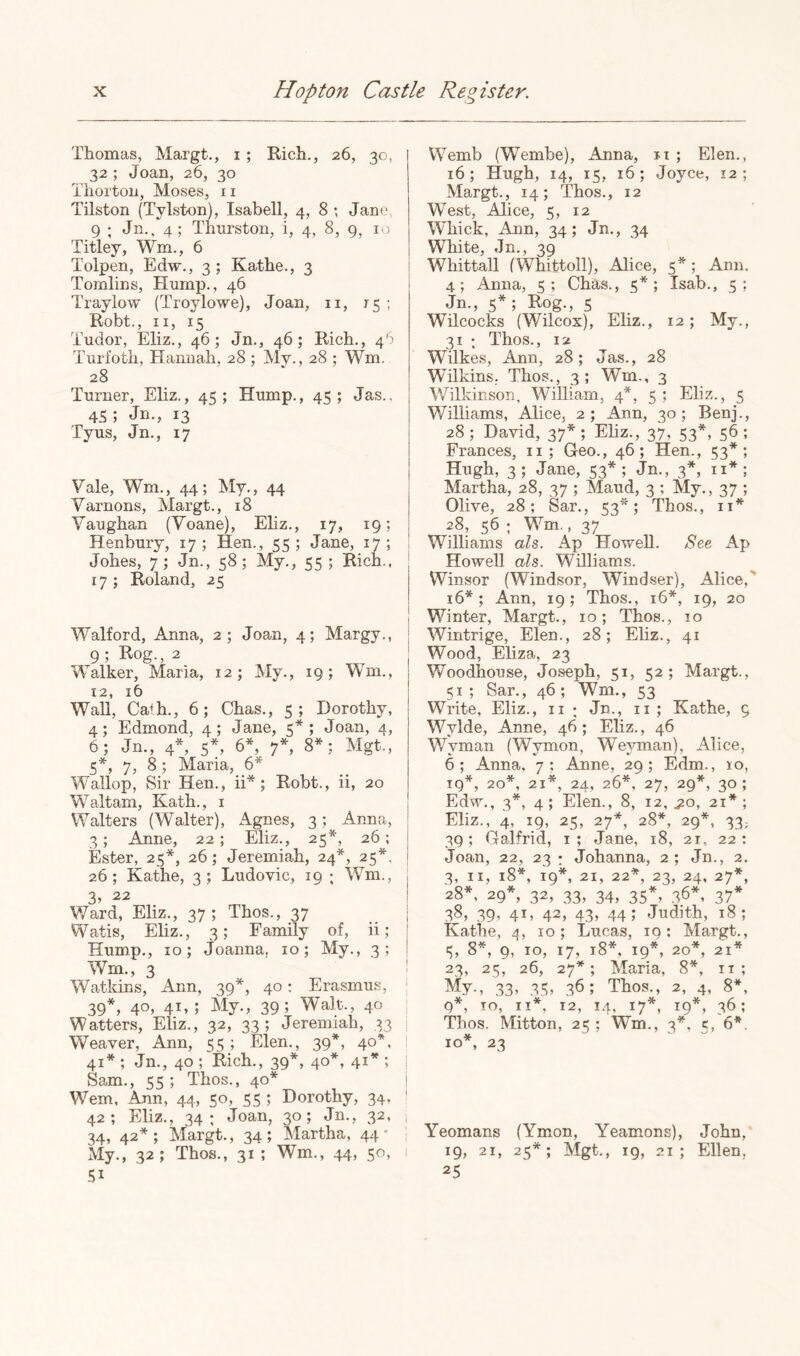 x Hopton Castle Register.
Thomas, Margt., 1 ; Rich., 26, 30,
32 ; Joan, 26, 30
Thorton, Moses, 11
Tilston (Tylston), Isabell, 4, 8 ; Jane,
9 ; Jn., 4 ; Thurston, i, 4, 8, 9, 10
Titley, Wm., 6
Tolpen, Edw., 3 ; Kathe., 3
Tomlins, Hump., 46
Traylow (Troylowe), Joan, 11, 15 ;
Robt., 11, 15
Tudor, Eliz., 46 ; Jn., 46 ; Rich., 46
Turfoth, Hannah, 28 ; My., 28 ; Wm.
28
Turner, Eliz., 45 ; Hump., 45 ; Jas.,
45 ; Jn., 13
Tyus, Jn., 17
Vale, Wm., 44 ; My., 44
Varnons, Margt., 18
Vaughan (Voane), Eliz., 17, 19 ;
Henbury, 17 ; Hen., 55 ; Jane, 17 ;
Johes, 7 ; Jn., 58 ; My., 55 ; Rich.,
17 ; Roland, 25
Walford, Anna, 2 ; Joan, 4 ; Margy.,
9 ; Rog., 2
Walker, Maria, 12 ; My., 19 ; Wm.,
12, 16
Wall, Cath., 6 ; Chas., 5 ; Dorothy,
4 ; Edmond, 4 ; Jane, 5* ; Joan, 4,
6 ; Jn., 4*, 5*, 6*, 7*, 8* ; Mgt.,
5*, 7, 8 ; Maria, 6*
Wallop, Sir Hen., ii* ; Robt., ii, 20
Waltam, Kath., 1
Walters (Walter), Agnes, 3 ; Anna,
3 ; Anne, 22 ; Eliz., 25*, 26 ;
Ester, 25*, 26 ; Jeremiah, 24*, 25*,
26 ; Kathe, 3 ; Ludovic, 19 ; Wm.,
3, 22
Ward, Eliz., 37 ; Thos., 37
Watis, Eliz., 3 ; Family of, ii ;
Hump., 10 ; Joanna, 10 ; My., 3 ;
Wm., 3
Watkins, Ann, 39*, 40 ; Erasmus,
39*, 40, 41, ; My., 39 ; Walt., 40
Watters, Eliz., 32, 33 ; Jeremiah, 33
Weaver, Ann, 55 ; Elen., 39*, 40*,
41* ; Jn., 40 ; Rich., 39*, 40*, 41* ;
Sam., 55 ; Thos., 40*
Wem, Ann, 44, 50, 55 ; Dorothy, 34,
42 ; Eliz., 34 ; Joan, 30 ; Jn., 32,
34, 42* ; Margt., 34 ; Martha, 44 ·
My., 32 ; Thos., 31 ; Wm., 44, 50,
51
Wemb (Wembe), Anna, 11 ; Elen.,
16 ; Hugh, 14, 15, 16 ; Joyce, 12 ;
Margt., 14 ; Thos., 12
West, Alice, 5, 12
Whick, Ann, 34 ; Jn., 34
White, Jn., 39
Whittall (Whittoll), Alice, 5* ; Ann.
4 ; Anna, 5 ; Chas., 5* ; Isab., 5 ;
Jn., 5* ; Rog., 5
Wilcocks (Wilcox), Eliz., 12 ; My.,
31 ; Thos., 12
Wilkes, Ann, 28 ; Jas., 28
Wilkins, Thos., 3 ; Wm., 3
Wilkinson, William, 4*, 5 ; Eliz., 5
Williams, Alice, 2 ; Ann, 30 ; Benj.,
28 ; David, 37* ; Eliz., 37, 53*, 56 ;
Frances, 11 ; Geo., 46 ; Hen., 53* ;
Hugh, 3 ; Jane, 53* ; Jn., 3*, 11* ;
Martha, 28, 37 ; Maud, 3 ; My., 37 ;
Olive, 28 ; Sar., 53* ; Thos., 11*
28, 56 ; Wm., 37
Williams als. Ap Howell. See Ap
Howell als. Williams.
Winsor (Windsor, Windser), Alice,
16* ; Ann, 19 ; Thos., 16*, 19, 20
Winter, Margt., 10 ; Thos., 10
Wintrige, Elen., 28 ; Eliz., 41
Wood, Eliza, 23
Woodhouse, Joseph, 51, 52 ; Margt.,
51 ; Sar., 46 ; Wm., 53
Write, Eliz., 11 ; Jn., 11 ; Kathe, 9
Wylde, Anne, 46 ; Eliz., 46
Wyman (Wymon, Weyman), Alice,
6 ; Anna, 7 ; Anne, 29 ; Edm., 10,
19*, 20*, 21*, 24, 26*, 27, 29*, 30 ;
Edw., 3*, 4 ; Elen., 8, 12, 20, 21* ;
Eliz., 4, 19, 25, 27*, 28*, 29*, 33,
39 ; Galfrid, 1 ; Jane, 18, 21, 22 ;
Joan, 22, 23 ; Johanna, 2 ; Jn., 2.
3, 11, 18*, 19*, 21, 22*, 23, 24, 27*,
28*, 29*, 32, 33, 34, 35*, 36*, 37*
38, 39, 41, 42, 43, 44 ; Judith, 18 ;
Kathe, 4, 10 ; Lucas, 19 ; Margt.,
5, 8*, 9, 10, 17, 18*, 19*, 20*, 21*
23, 25, 26, 27* ; Maria, 8*, 11 ;
My., 33, 35, 36 ; Thos., 2, 4, 8*,
9*, 10, 11*, 12, 14, 17*, 19*, 36 ;
Thos. Mitton, 25 ; Wm., 3*, 5, 6*.
10*, 23
Yeomans (Ymon, Yeamons), John,
19, 21, 25* ; Mgt., 19, 21 ; Ellen,
25